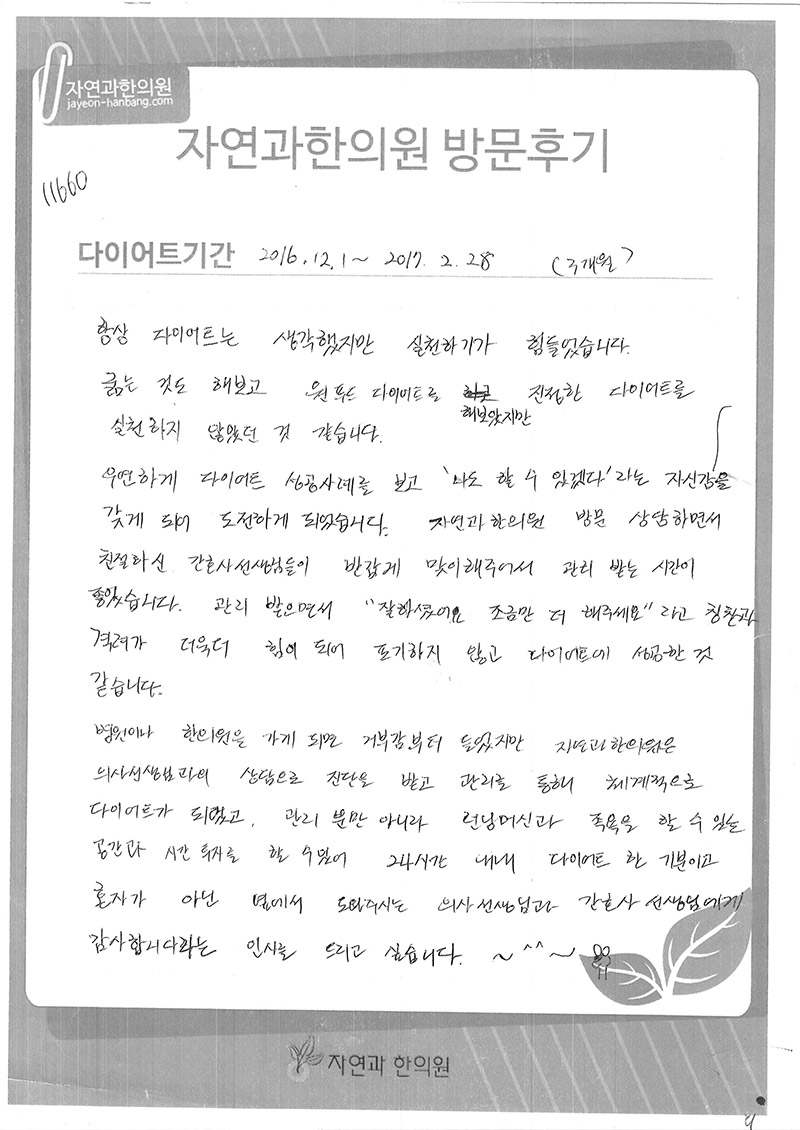 자연과한의원
jayeon-hanbang.com
자연과한의원 방문후기
11660
다이어트기간 2016. 12. 1 ~ 2017. 2. 28 (3개월)
항상 다이어트는 생각했지만 실천하기가 힘들었습니다.
굶는 것도 해보고 원푸드 다이어트로 해보았지만 진정한 다이어트를
실천하지 않았던 것 같습니다.
우연하게 다이어트 성공사례를 보고 '나도 할 수 있겠다' 라는 자신감을
갖게 되어 도전하게 되었습니다. 자연과한의원 방문 상담하면서
친절하신 간호사선생님들이 반갑게 맞이해주어서 관리 받는 시간이
좋았습니다. 관리 받으면서 "잘하셨어요 조금만 더 해주세요" 라고 칭찬과
격려가 더욱더 힘이 되어 포기하지 않고 다이어트에 성공한 것
같습니다.
병원이나 한의원을 가게 되면 거부감부터 들었지만 자연과한의원은
의사선생님과의 상담으로 진단을 받고 관리를 통해 체계적으로
다이어트가 되었고, 관리 뿐만 아니라 런닝머신과 족욕을 할 수 있는
공간과 시간 투자를 할 수 있어 24시간 내내 다이어트 한 기분이고
혼자가 아닌 옆에서 도와주시는 의사선생님과 간호사 선생님에게
감사합니다라는 인사를 드리고 싶습니다. ~^^~
자연과 한의원